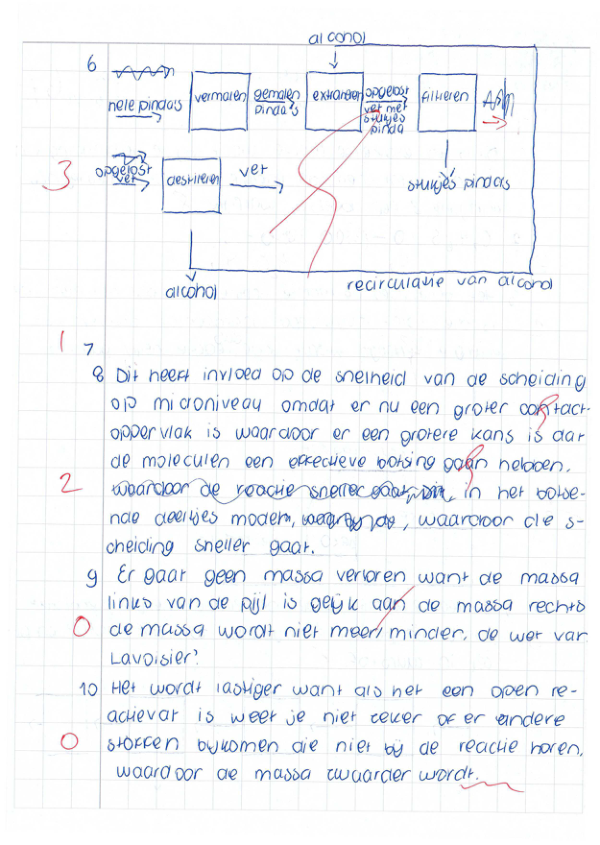 alcohol
6
hele pinda's
vermalen
gemalen pinda's
extraheren
opgelost vet met stukjes pinda
filtreren
stukjes pinda's
3
opgelost vet
destilleren
vet
alcohol
recirculatie van alcohol
1
7
8 Dit heeft invloed op de snelheid van de scheiding
op microniveau omdat er nu een groter contact-
oppervlak is waardoor er een grotere kans is dat
de moleculen een effectieve botsing gaan hebben.
2
waardoor de reactie sneller in het botse-
nde deeltjes modem, waardoor die s-
cheiding sneller gaat.
9 Er gaat geen massa verloren want de massa
links van de pijl is gelijk aan de massa rechts
0
de massa wordt niet meer/minder. de wet van
Lavoisier.
10 Het wordt lastiger want als het een open re-
actievat is weet je niet zeker of er andere
0
stoffen bijkomen die niet bij de reactie horen.
waardoor de massa zwaarder wordt.